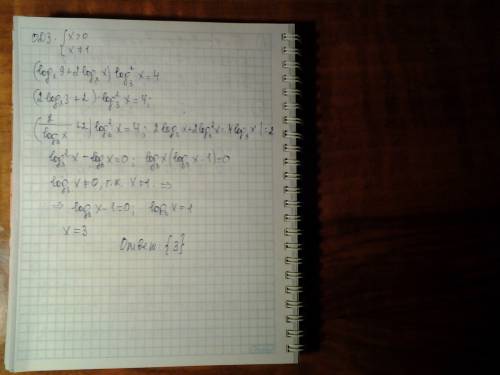 ОДЗ. { x>0
{ x≠1
(logₓ9+2logₓx)·log₃²x=4
(2logₓ3+2)·log₃²x=4;
(2/log₃x +2)log₃²x=4; 2log₃x+2log₃²x=4
log₃²x-log₃x=0; log₃x(log₃x-1)=0
log₃x≠0, т.к. x≠1 ⇒
⇒ log₃x-1=0; log₃x=1
x=3
Ответ: {3}